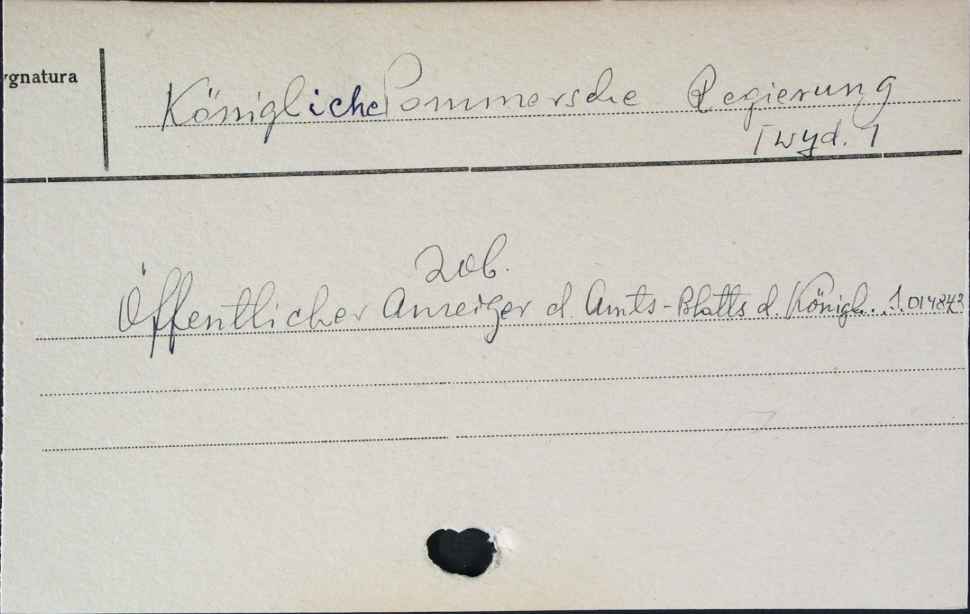 ygnatura
Königliche Pommersche Regierung
Twyd. 1
Zob.
Öffentlicher Anzeiger d. Amts-Blatts d. Königl... 1.014843